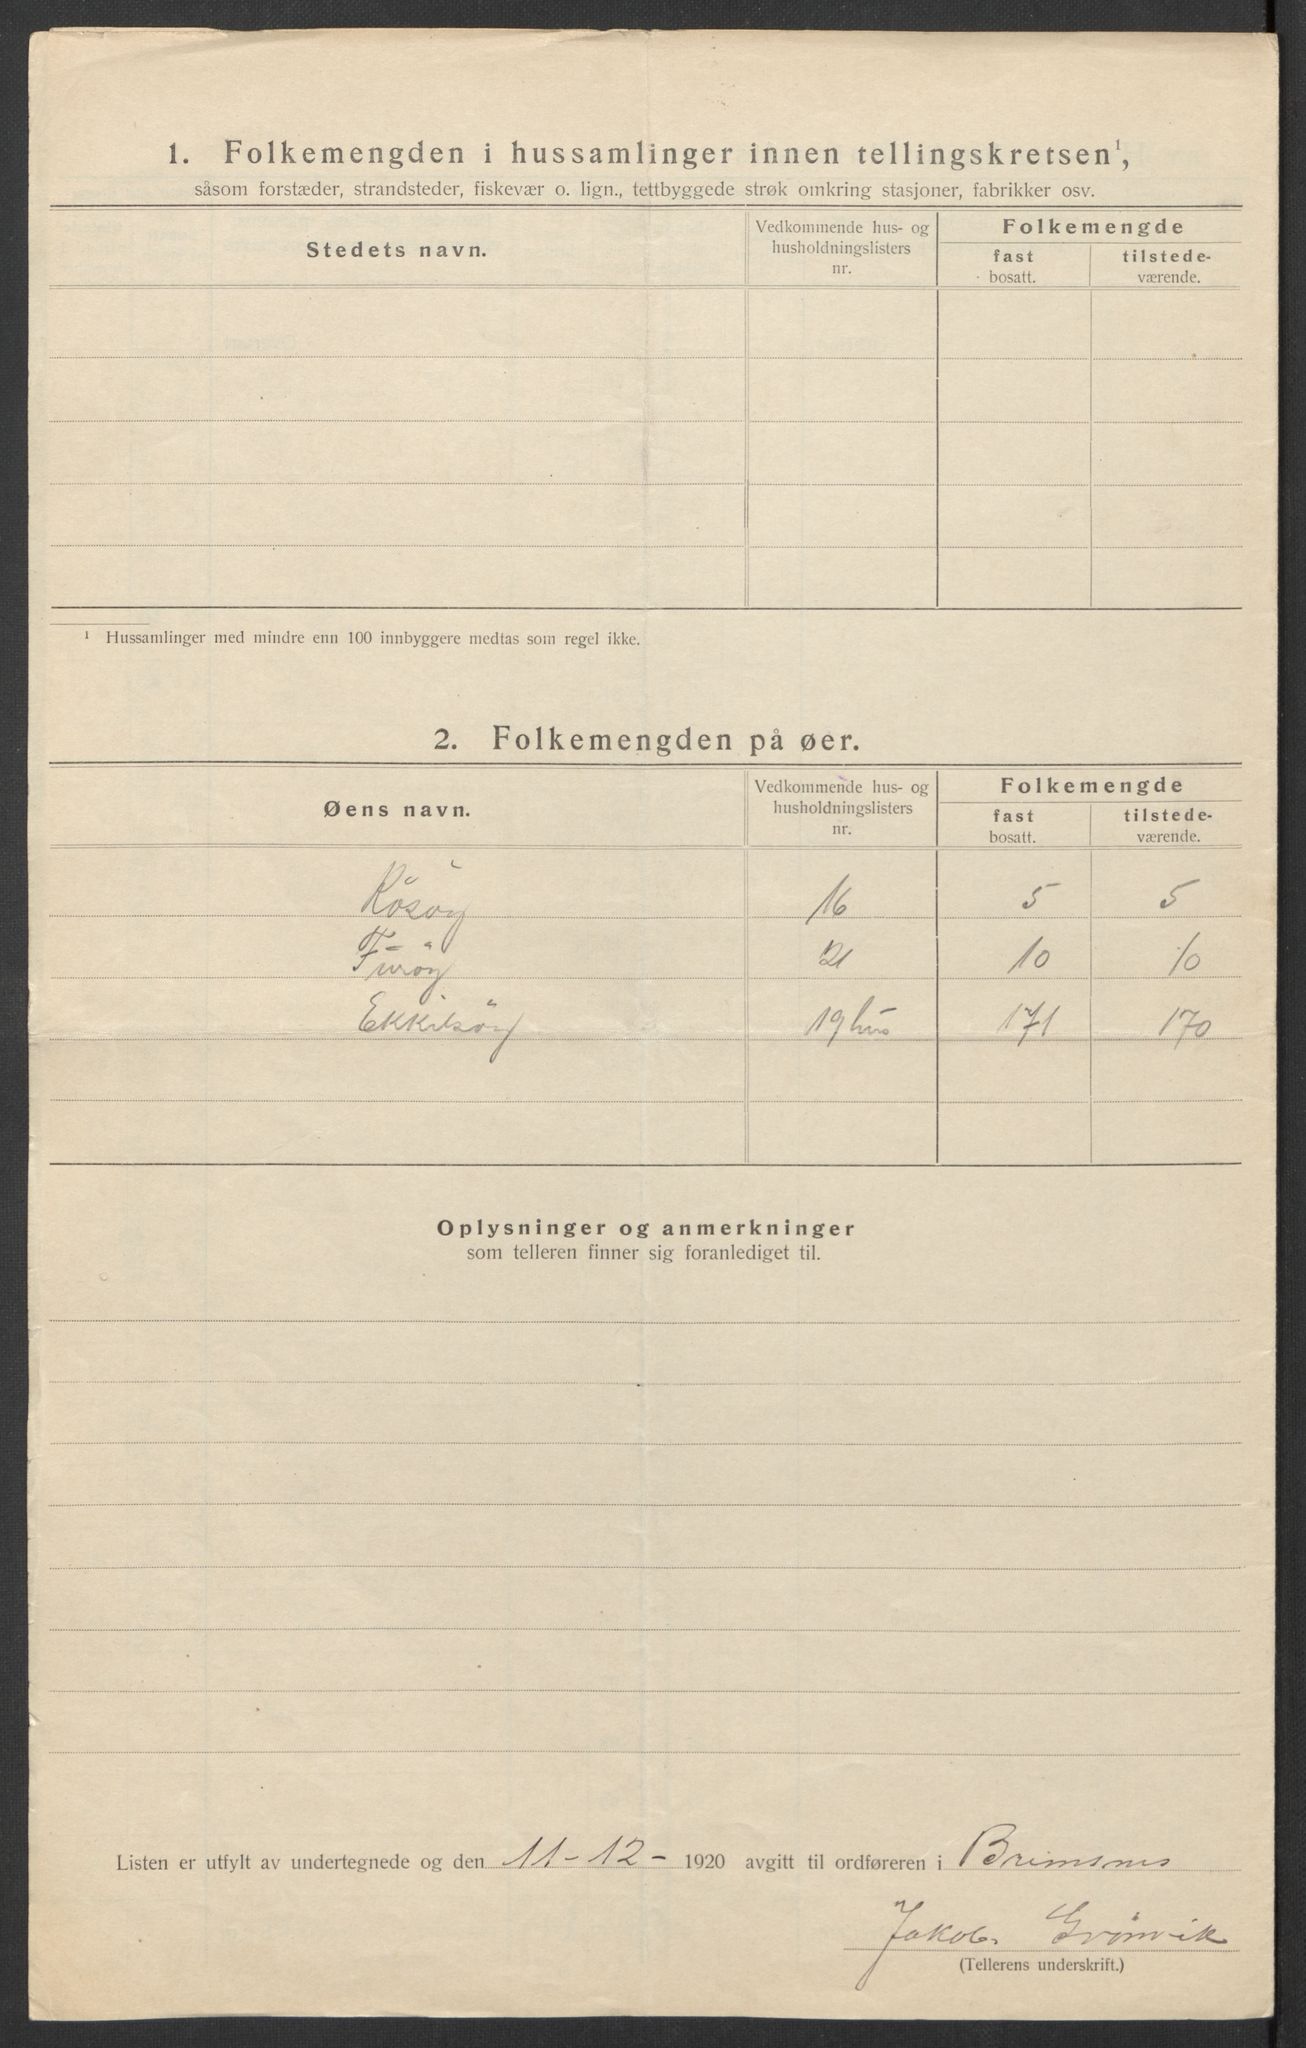 1. Folkemengden i hussamlinger innen tellingskretsen¹,
såsom forstæder, strandsteder, fiskevær o. lign., tettbyggede strøk omkring stasjoner, fabrikker osv.
Stedets navn. Vedkommende hus- og husholdningslisters nr. Folkemengde
fast bosatt. tilstede-værende.
¹ Hussamlinger med mindre enn 100 innbyggere medtas som regel ikke.
2. Folkemengden på øer.
Øens navn. Vedkommende hus- og husholdningslisters nr. Folkemengde
fast bosatt. tilstede-værende.
Rosöy 16 5 5
Furöy 21 10 10
Ekkilsöy 19 hus 171 170
Oplysninger og anmerkninger
som telleren finner sig foranlediget til.
Listen er utfylt av undertegnede og den 11-12- 1920 avgitt til ordføreren i Brimsnes
Jakob Grönvik
(Tellerens underskrift.)